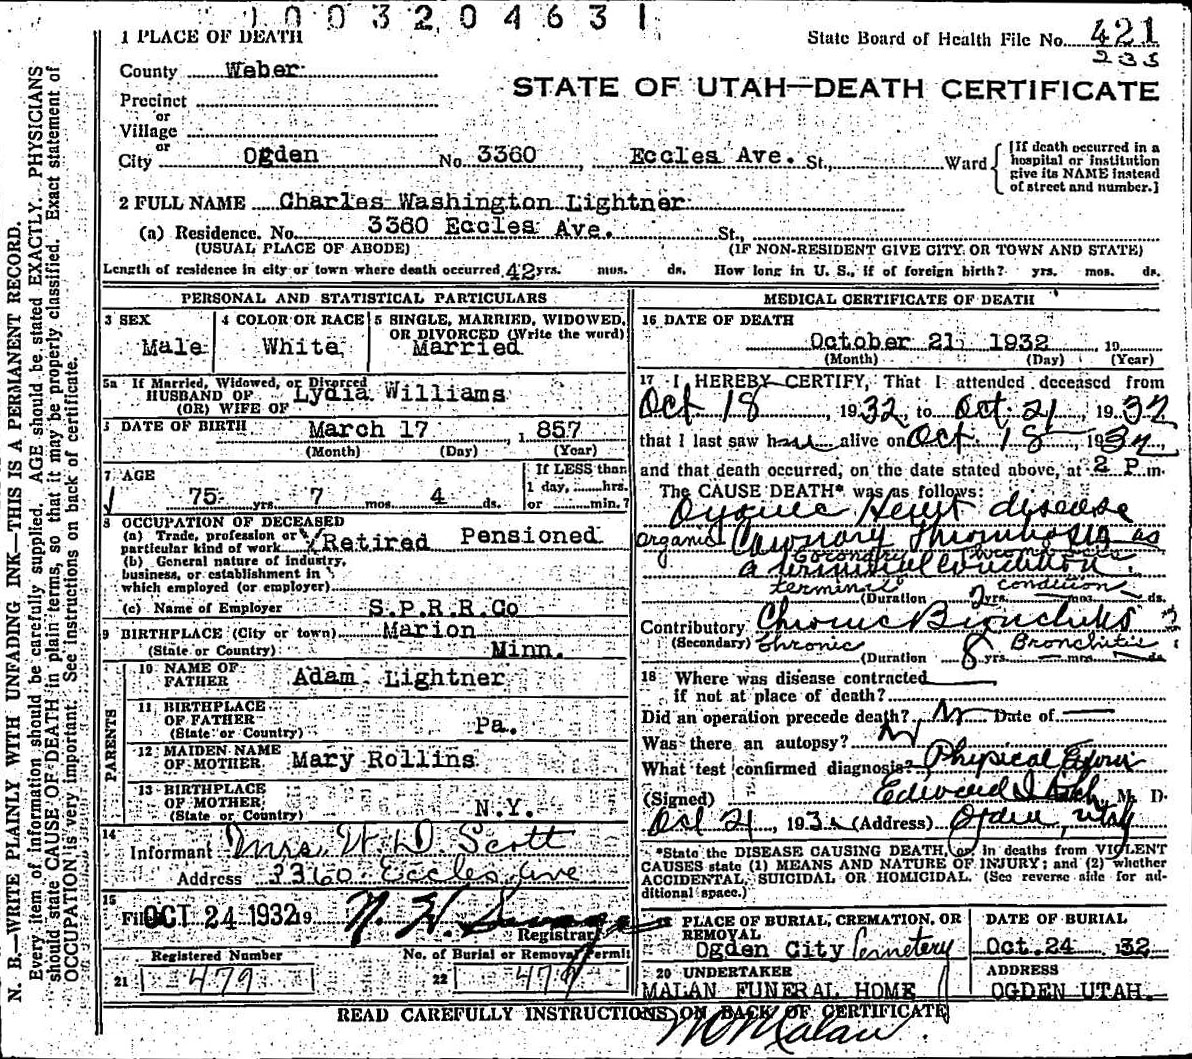 1003204631
1 PLACE OF DEATH
State Board of Health File No. 421
235
County Weber
STATE OF UTAH—DEATH CERTIFICATE
Precinct
or
Village
or
City Ogden No. 3360 Eccles Ave. St., Ward
[If death occurred in a
hospital or institution
give its NAME instead
of street and number.]
2 FULL NAME Charles Washington Lightner
(a) Residence. No. 3360 Eccles Ave. St.,
(USUAL PLACE OF ABODE) (IF NON-RESIDENT GIVE CITY OR TOWN AND STATE)
Length of residence in city or town where death occurred 42 yrs. mos. ds. How long in U. S., if of foreign birth? yrs. mos. ds.
PERSONAL AND STATISTICAL PARTICULARS
3 SEX
Male
4 COLOR OR RACE
White
5 SINGLE, MARRIED, WIDOWED,
OR DIVORCED (Write the word)
Married
5a If Married, Widowed, or Divorced
HUSBAND OF
(OR) WIFE OF
Lydia Williams
DATE OF BIRTH March 17 , 1 857
(Month) (Day) (Year)
7 AGE
75 yrs. 7 mos. 4 ds.
If LESS than
1 day, hrs.
or min.?
8 OCCUPATION OF DECEASED
(a) Trade, profession or
particular kind of work Retired Pensioned
(b) General nature of industry,
business, or establishment in
which employed (or employer)
(c) Name of Employer S.P.R.R.Co
9 BIRTHPLACE (City or town) Marion
(State or Country) Minn.
PARENTS
10 NAME OF
FATHER Adam Lightner
11 BIRTHPLACE
OF FATHER
(State or Country) Pa.
12 MAIDEN NAME
OF MOTHER Mary Rollins
13 BIRTHPLACE
OF MOTHER
(State or Country) N.Y.
14
Informant Mrs. W. D. Scott
Address 3360 Eccles Ave
15
Filed OCT 24 1932 19
Registrar
Registered Number
21 479
No. of Burial or Removal Permit
22 479
MEDICAL CERTIFICATE OF DEATH
16 DATE OF DEATH
October 21 1932 19
(Month) (Day) (Year)
17 I HEREBY CERTIFY, That I attended deceased from
Oct 18 , 1932, to Oct. 21 , 1932
that I last saw him alive on Oct. 18 , 1932,
and that death occurred, on the date stated above, at 2 P.m.
The CAUSE DEATH* was as follows:
Organic Heart disease
organic Coronary Thrombosis as
Coronary Thrombosis
a terminal condition.
terminal condition
(Duration 2 yrs. mos. ds.
Contributory Chronic Bronchitis
(Secondary) Chronic Bronchitis
(Duration 8 yrs. mos. ds.
18 Where was disease contracted
if not at place of death?
Did an operation precede death? No Date of
Was there an autopsy? No
What test confirmed diagnosis? Physical Exam
(Signed) Edward I. Rich M. D.
Oct 21 , 1932 (Address) Ogden, Utah
*State the DISEASE CAUSING DEATH, or in deaths from VIOLENT
CAUSES state (1) MEANS AND NATURE OF INJURY; and (2) whether
ACCIDENTAL, SUICIDAL OR HOMICIDAL. (See reverse side for ad-
ditional space.)
19 PLACE OF BURIAL, CREMATION, OR
REMOVAL
Ogden City Cemetery
DATE OF BURIAL
Oct.24 1932
20 UNDERTAKER
MALAN FUNERAL HOME
ADDRESS
OGDEN UTAH.
READ CAREFULLY INSTRUCTIONS ON BACK OF CERTIFICATE
Malan
N. B.—WRITE PLAINLY WITH UNFADING INK—THIS IS A PERMANENT RECORD.
Every item of information should be carefully supplied. AGE should be stated EXACTLY. PHYSICIANS
should state CAUSE OF DEATH in plain terms, so that it may be properly classified. Exact statement of
OCCUPATION is very important. See instructions on back of certificate.